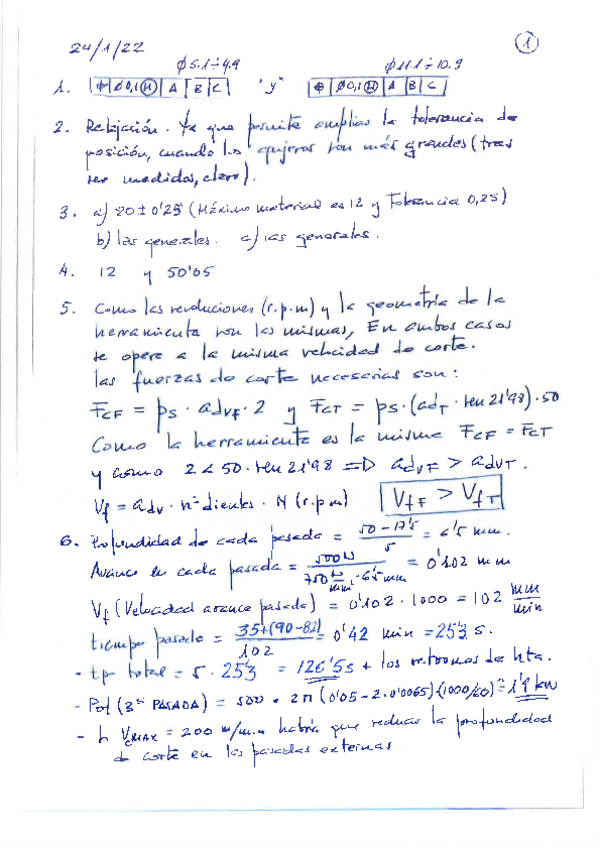 24/1/22
1
Ø5.1÷4.9 Ø11.1÷10.9
1. ⌖ Ø0,1 Ⓜ A B C "y" ⌖ Ø0,1 Ⓜ A B C
2. Relajación. Ya que permite ampliar la tolerancia de
posición, cuando los agujeros son más grandes (tras
ser medidos, claro).
3. a) 20 ± 0'25 (Máximo material es 12 y Tolerancia 0,25)
b) las generales. c) las generales.
4. 12 y 50'05
5. Como las revoluciones (r.p.m) y la geometría de la
herramienta son las mismas, En ambos casos
se opera a la misma velocidad de corte.
las fuerzas de corte necesarias son:
FCF = ps · advF · 2 y FCT = ps · (advT · sen 21'98) · 50
Como la herramienta es la misma FCF = FCT
y como 2 < 50 · sen 21'98 => advF > advT.
Vf = adv · nº dientes · N (r.p.m) VfF > VfT
6. Profundidad de cada pasada = (50 - 17'5)/5 = 6'5 mm.
Avance en cada pasada = 500 N/(750 N/mm² · 6'5 mm) = 0'102 mm
Vf (Velocidad avance pasada) = 0'102 · 1000 = 102 mm/min
tiempo pasada = 35+(90-82)/102 = 0'42 min = 25'3 s.
- tp total = 5 · 25'3 = 126'5 s + los retornos de hta.
- Pot (3ª PASADA) = 500 · 2π (0'05 - 2·0'0065)·(1000/60) ≅ 1'9 kW
- VcMAX = 200 m/min habría que reducir la profundidad
de corte en las pasadas externas